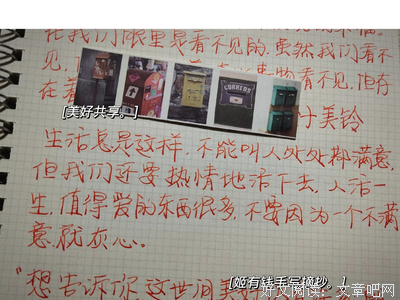 在我们眼里是看不见的,虽然我们看不
见,
看不见,但存
在着
美铃
CORREOS
[美好共享。]
生活总是这样,不能叫人处处都满意,
但我们还要热情地活下去,人活一
生,值得爱的东西很多,不要因为一个不满
意,就灰心。
"想告诉你,这世间美
[姬有钱手写摘抄。]
好文阅读:文章吧网